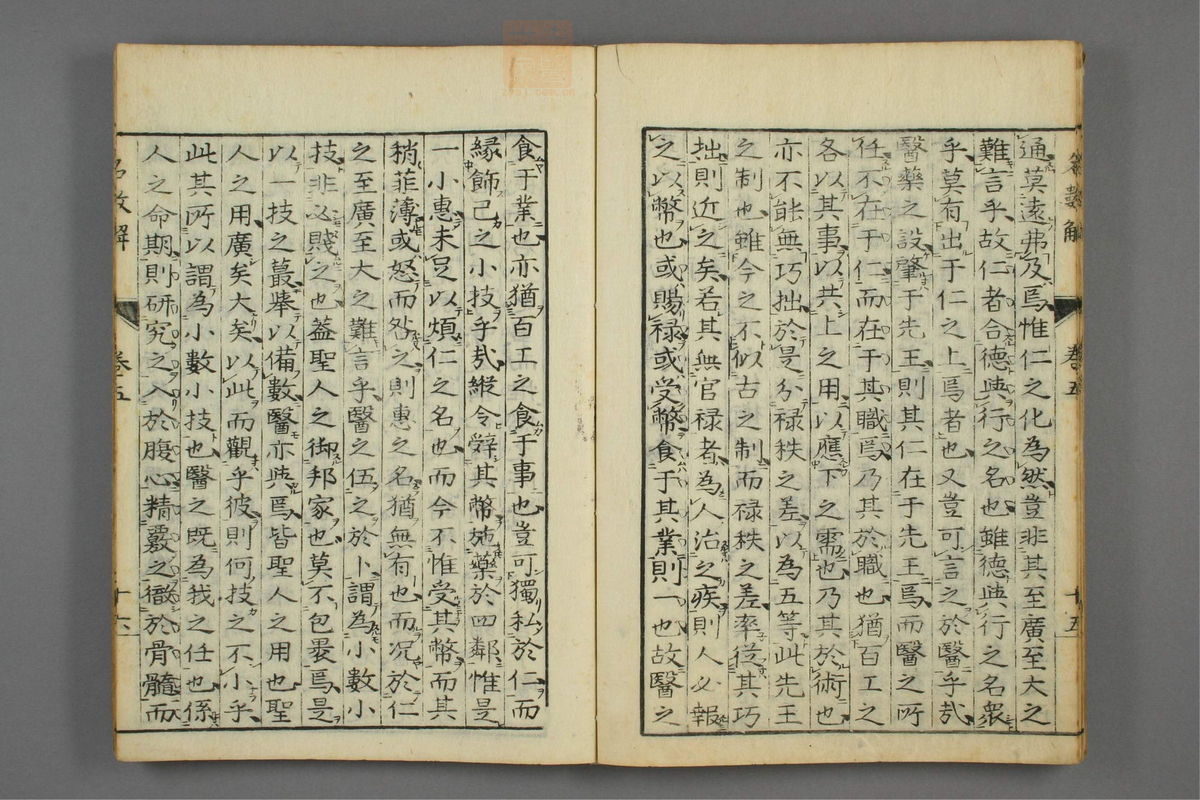 通莫遠弗及焉惟仁之化為然豈非其至廣至大之
難言乎故仁者合德與行之名也雖德與行之名衆
乎莫有出于仁之上焉者也又豈可言之於醫乎哉
醫藥之設肇于先王則其仁在于先王焉而醫之所
任不在于仁而在于其職焉乃其於職也猶百工之
各以其事以共上之用以應下之需也乃其於術也
亦不能無巧拙於是分禄秩之差以為五等此先王
之制也雖今之不似古之制而禄秩之差率從其巧
拙則近之矣若其無官禄者為人治之疾則人必報
之以幣也或賜禄或受幣食于其業則一也故醫之
卷五
十五
食于業也亦猶百工之食于事也豈可獨私於仁而
緣飾己之小技乎哉縱令辤其幣施藥於四鄰惟是
一小惠未足以煩仁之名也而今不惟受其幣而其
稍菲薄或怒而咎之則惠之名猶無有也而况於仁
之至廣至大之難言乎醫之伍之於卜謂為小數小
技非以賤之也蓋聖人之御邦家也莫不包褁焉是
以一技之蕞舉以備數醫亦與焉皆聖人之用也聖
人之用廣矣大矣以此而觀乎彼則何技之不小乎
此其所以謂為小數小技也醫之既為我之任也係
人之命期則研究之入於腹心精覈之徹於骨髓而
卷五
十六